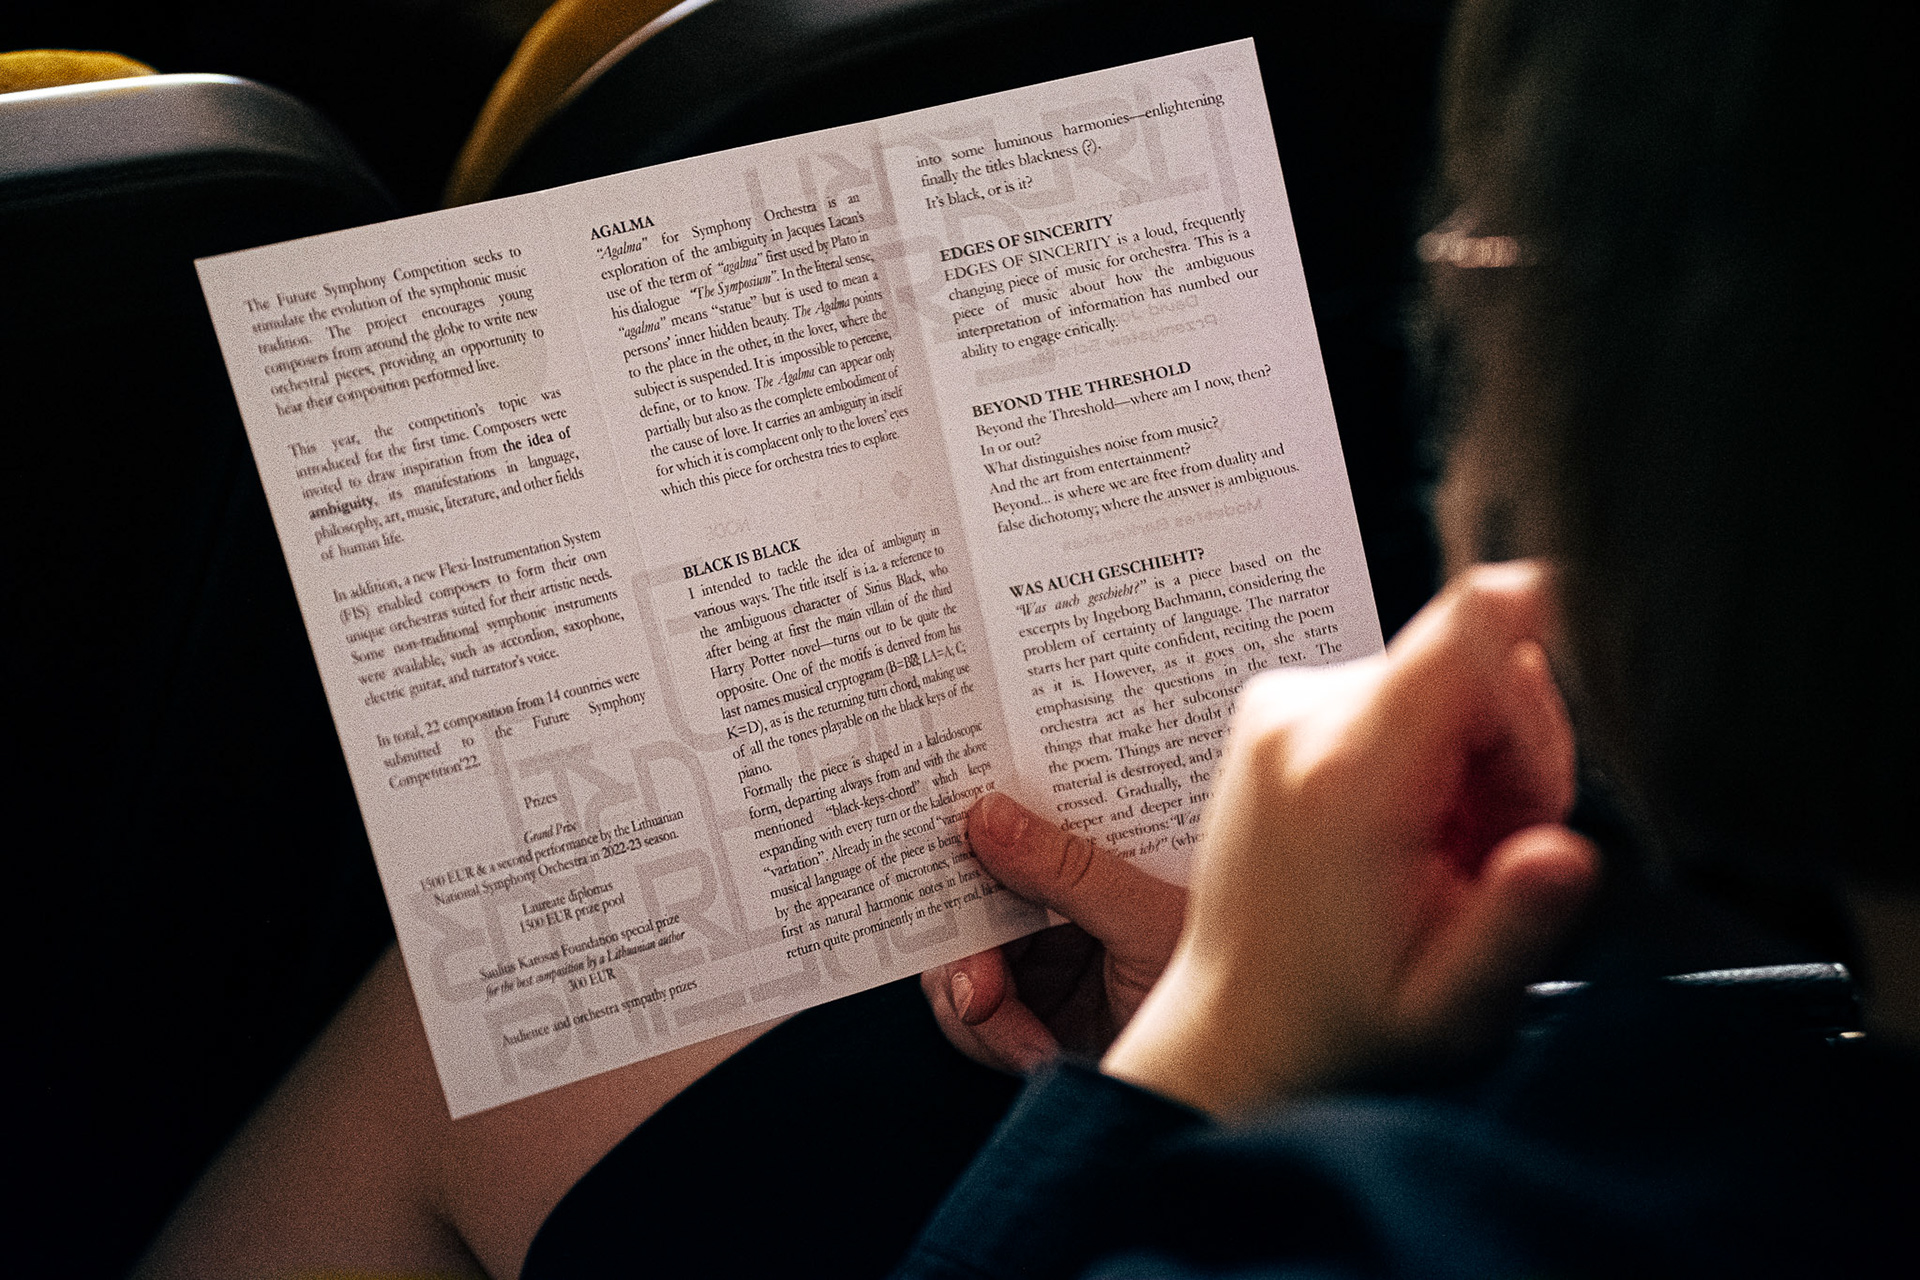 The Future Symphony Competition seeks to
stimulate the evolution of the symphonic music
tradition. The project encourages young
composers from around the globe to write new
orchestral pieces, providing an opportunity to
hear their composition performed live.
This year, the competition's topic was
introduced for the first time. Composers were
invited to draw inspiration from the idea of
ambiguity, its manifestations in language,
philosophy, art, music, literature, and other fields
of human life.
In addition, a new Flexi-Instrumentation System
(FIS) enabled composers to form their own
unique orchestras suited for their artistic needs.
Some non-traditional symphonic instruments
were available, such as accordion, saxophone,
electric guitar, and narrator's voice.
In total, 22 composition from 14 countries were
submitted to the Future Symphony
Competition'22.
Prizes
Grand Prix
1500 EUR & a second performance by the Lithuanian
National Symphony Orchestra in 2022-23 season.
Laureate diplomas
1500 EUR prize pool
Saulius Karosas Foundation special prize
for the best composition by a Lithuanian author
300 EUR
Audience and orchestra sympathy prizes
AGALMA
“Agalma” for Symphony Orchestra is an
exploration of the ambiguity in Jacques Lacan's
use of the term of “agalma” first used by Plato in
his dialogue “The Symposium”. In the literal sense,
“agalma” means “statue” but is used to mean a
persons' inner hidden beauty. The Agalma points
to the place in the other, in the lover, where the
subject is suspended. It is impossible to perceive,
define, or to know. The Agalma can appear only
partially but also as the complete embodiment of
the cause of love. It carries an ambiguity in itself
for which it is complacent only to the lovers' eyes
which this piece for orchestra tries to explore.
BLACK IS BLACK
I intended to tackle the idea of ambiguity in
various ways. The title itself is i.a. a reference to
the ambiguous character of Sirius Black, who
after being at first the main villain of the third
Harry Potter novel—turns out to be quite the
opposite. One of the motifs is derived from his
last names musical cryptogram (B=B, LA=A, C,
K=D), as is the returning tutti chord, making use
of all the tones playable on the black keys of the
piano.
Formally the piece is shaped in a kaleidoscopic
form, departing always from and with the above
mentioned “black-keys-chord” which keeps
expanding with every turn or the kaleidoscope or
“variation”. Already in the second
musical language of the piece is being
by the appearance of microtones,
first as natural harmonic notes in brass
return quite prominently in the very end,
into some luminous harmonies—enlightening
finally the titles blackness (?).
It's black, or is it?
EDGES OF SINCERITY
EDGES OF SINCERITY is a loud, frequently
changing piece of music for orchestra. This is a
piece of music about how the ambiguous
interpretation of information has numbed our
ability to engage critically.
BEYOND THE THRESHOLD
Beyond the Threshold—where am I now, then?
In or out?
What distinguishes noise from music?
And the art from entertainment?
Beyond... is where we are free from duality and
false dichotomy; where the answer is ambiguous.
WAS AUCH GESCHIEHT?
“Was auch geschieht?” is a piece based on the
excerpts by Ingeborg Bachmann, considering the
problem of certainty of language. The narrator
starts her part quite confident, reciting the poem
as it is. However, as it goes on, she starts
emphasising the questions in the text. The
orchestra act as her
things that make her doubt
the poem. Things are never
material is destroyed, and
crossed. Gradually, the
deeper and deeper
questions: “Was
ich?”